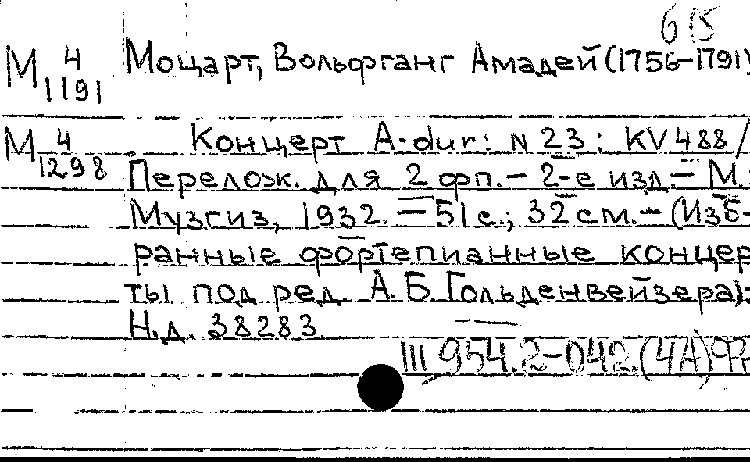 615
М 4/1191 Моцарт, Вольфганг Амадей (1756-1791)
М 4/1298 Концерт A-dur: N 23: KV 488/
Перелож. для 2 фп. - 2-е изд. - М.:
Музгиз, 1932. - 51 с.; 32 см. - (Изб-
ранные фортепианные концер
ты под ред. А. Б. Гольденвейзера).
Н.д. 38283
III 954.2-042.(4А)